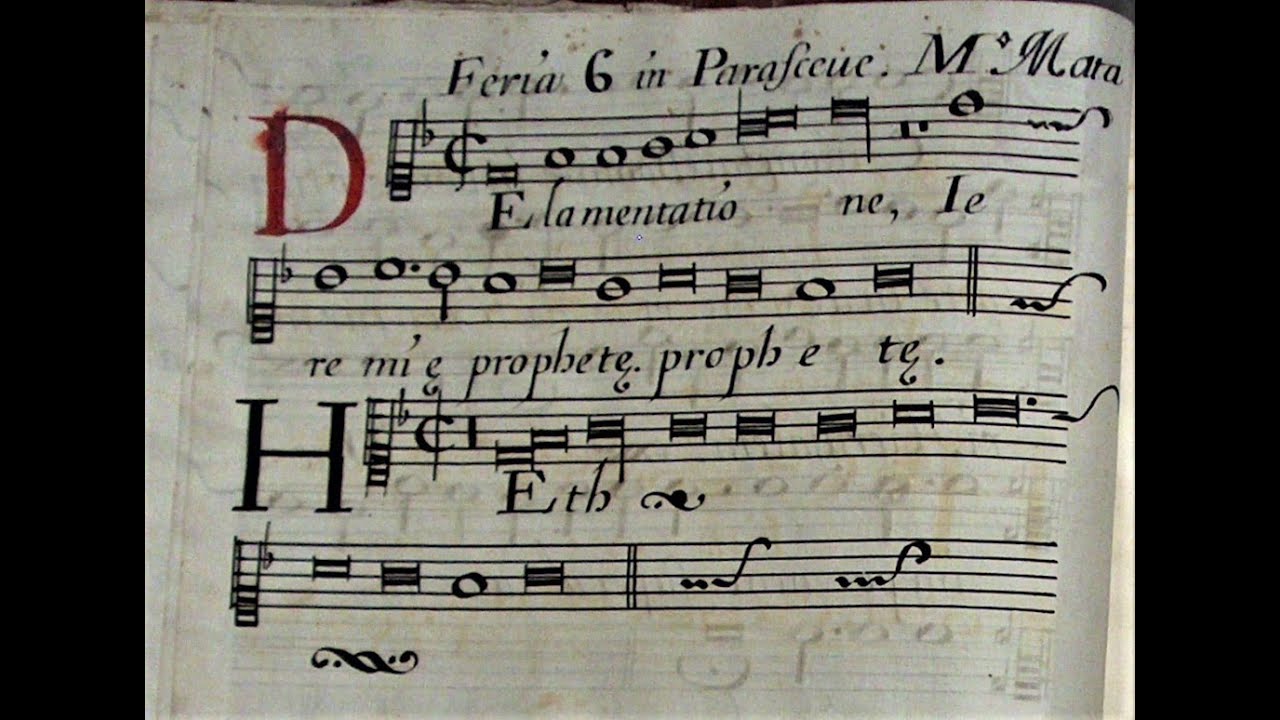 Feria 6 in Paraſceue. Mº Mata
DElamentatio ne, Ie
re mię prophetę. proph e tę.
HEth